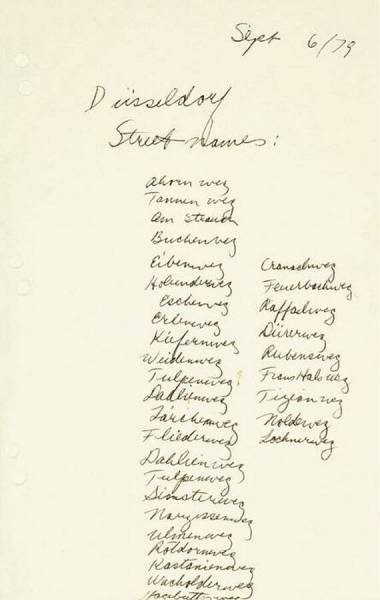 Sept 6/79
Düsseldorf
Street names:
Ahornweg
Tannenweg
Am Strauch
Buchenweg
Eibenweg
Holunderweg
Eschenweg
Erlenweg
Kiefernweg
Weidenweg
Tulpenweg
Dahlienweg
Lärchenweg
Fliederweg
Dahlienweg
Tulpenweg
Ginsterweg
Narzissenweg
Ulmenweg
Rotdornweg
Kastanienweg
Wacholderweg
Cranachweg
Feuerbachweg
Raffaelweg
Dürerweg
Rubensweg
Frans Hals Weg
Tizianweg
Noldeweg
Lochnerweg